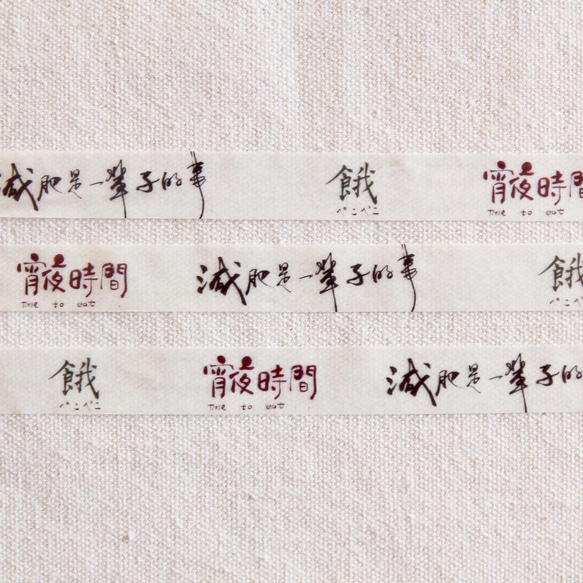 減肥是一輩子的事 餓 宵夜時間
ぺこぺこ Time to eat
宵夜時間 減肥是一輩子的事 餓
Time to eat ぺこぺこ
餓 宵夜時間 減肥是一輩子的
ぺこぺこ Time to eat